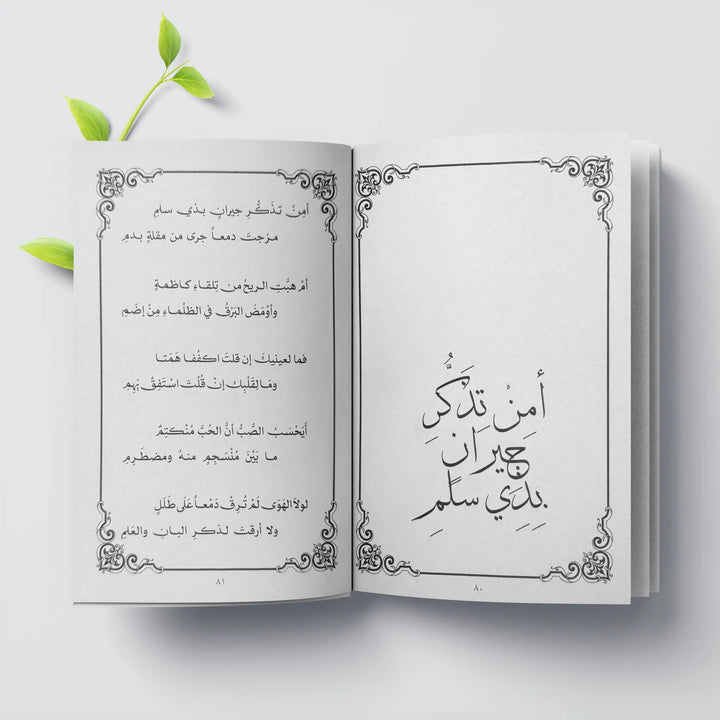 أمِنْ تَذَكُّرِ
جِيرَانٍ
بِذِي سَلَمِ
٨٠
أمِنْ تَذَكُّرِ جيرانٍ بذي سلمِ
مزجتَ دمعاً جرى من مقلةٍ بدمِ
أمْ هبَّتِ الريحُ من تِلقاءِ كاظمةٍ
وأوْمَضَ البَرْقُ في الظلْماءِ مِنْ إضَمِ
فما لعينيكَ إن قلتَ اكفُفا هَمَتا
ومَا لِقَلْبِكَ إنْ قُلْتَ اسْتَفِقْ يَهِمِ
أيَحْسَبُ الصَّبُّ أنَّ الحُبَّ مُنْكتِمٌ
ما بَيْنَ مُنْسَجِمٍ منهُ ومضطَرِمِ
لولاَ الهَوَى لَمْ تُرِقْ دَمْعاً عَلَى طَلَلٍ
ولا أرقتَ لذكرِ البانِ والعَلمِ
٨١